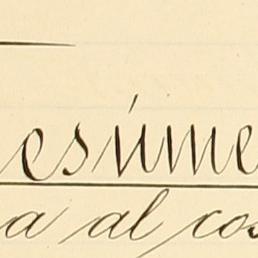 esúme
a al cos